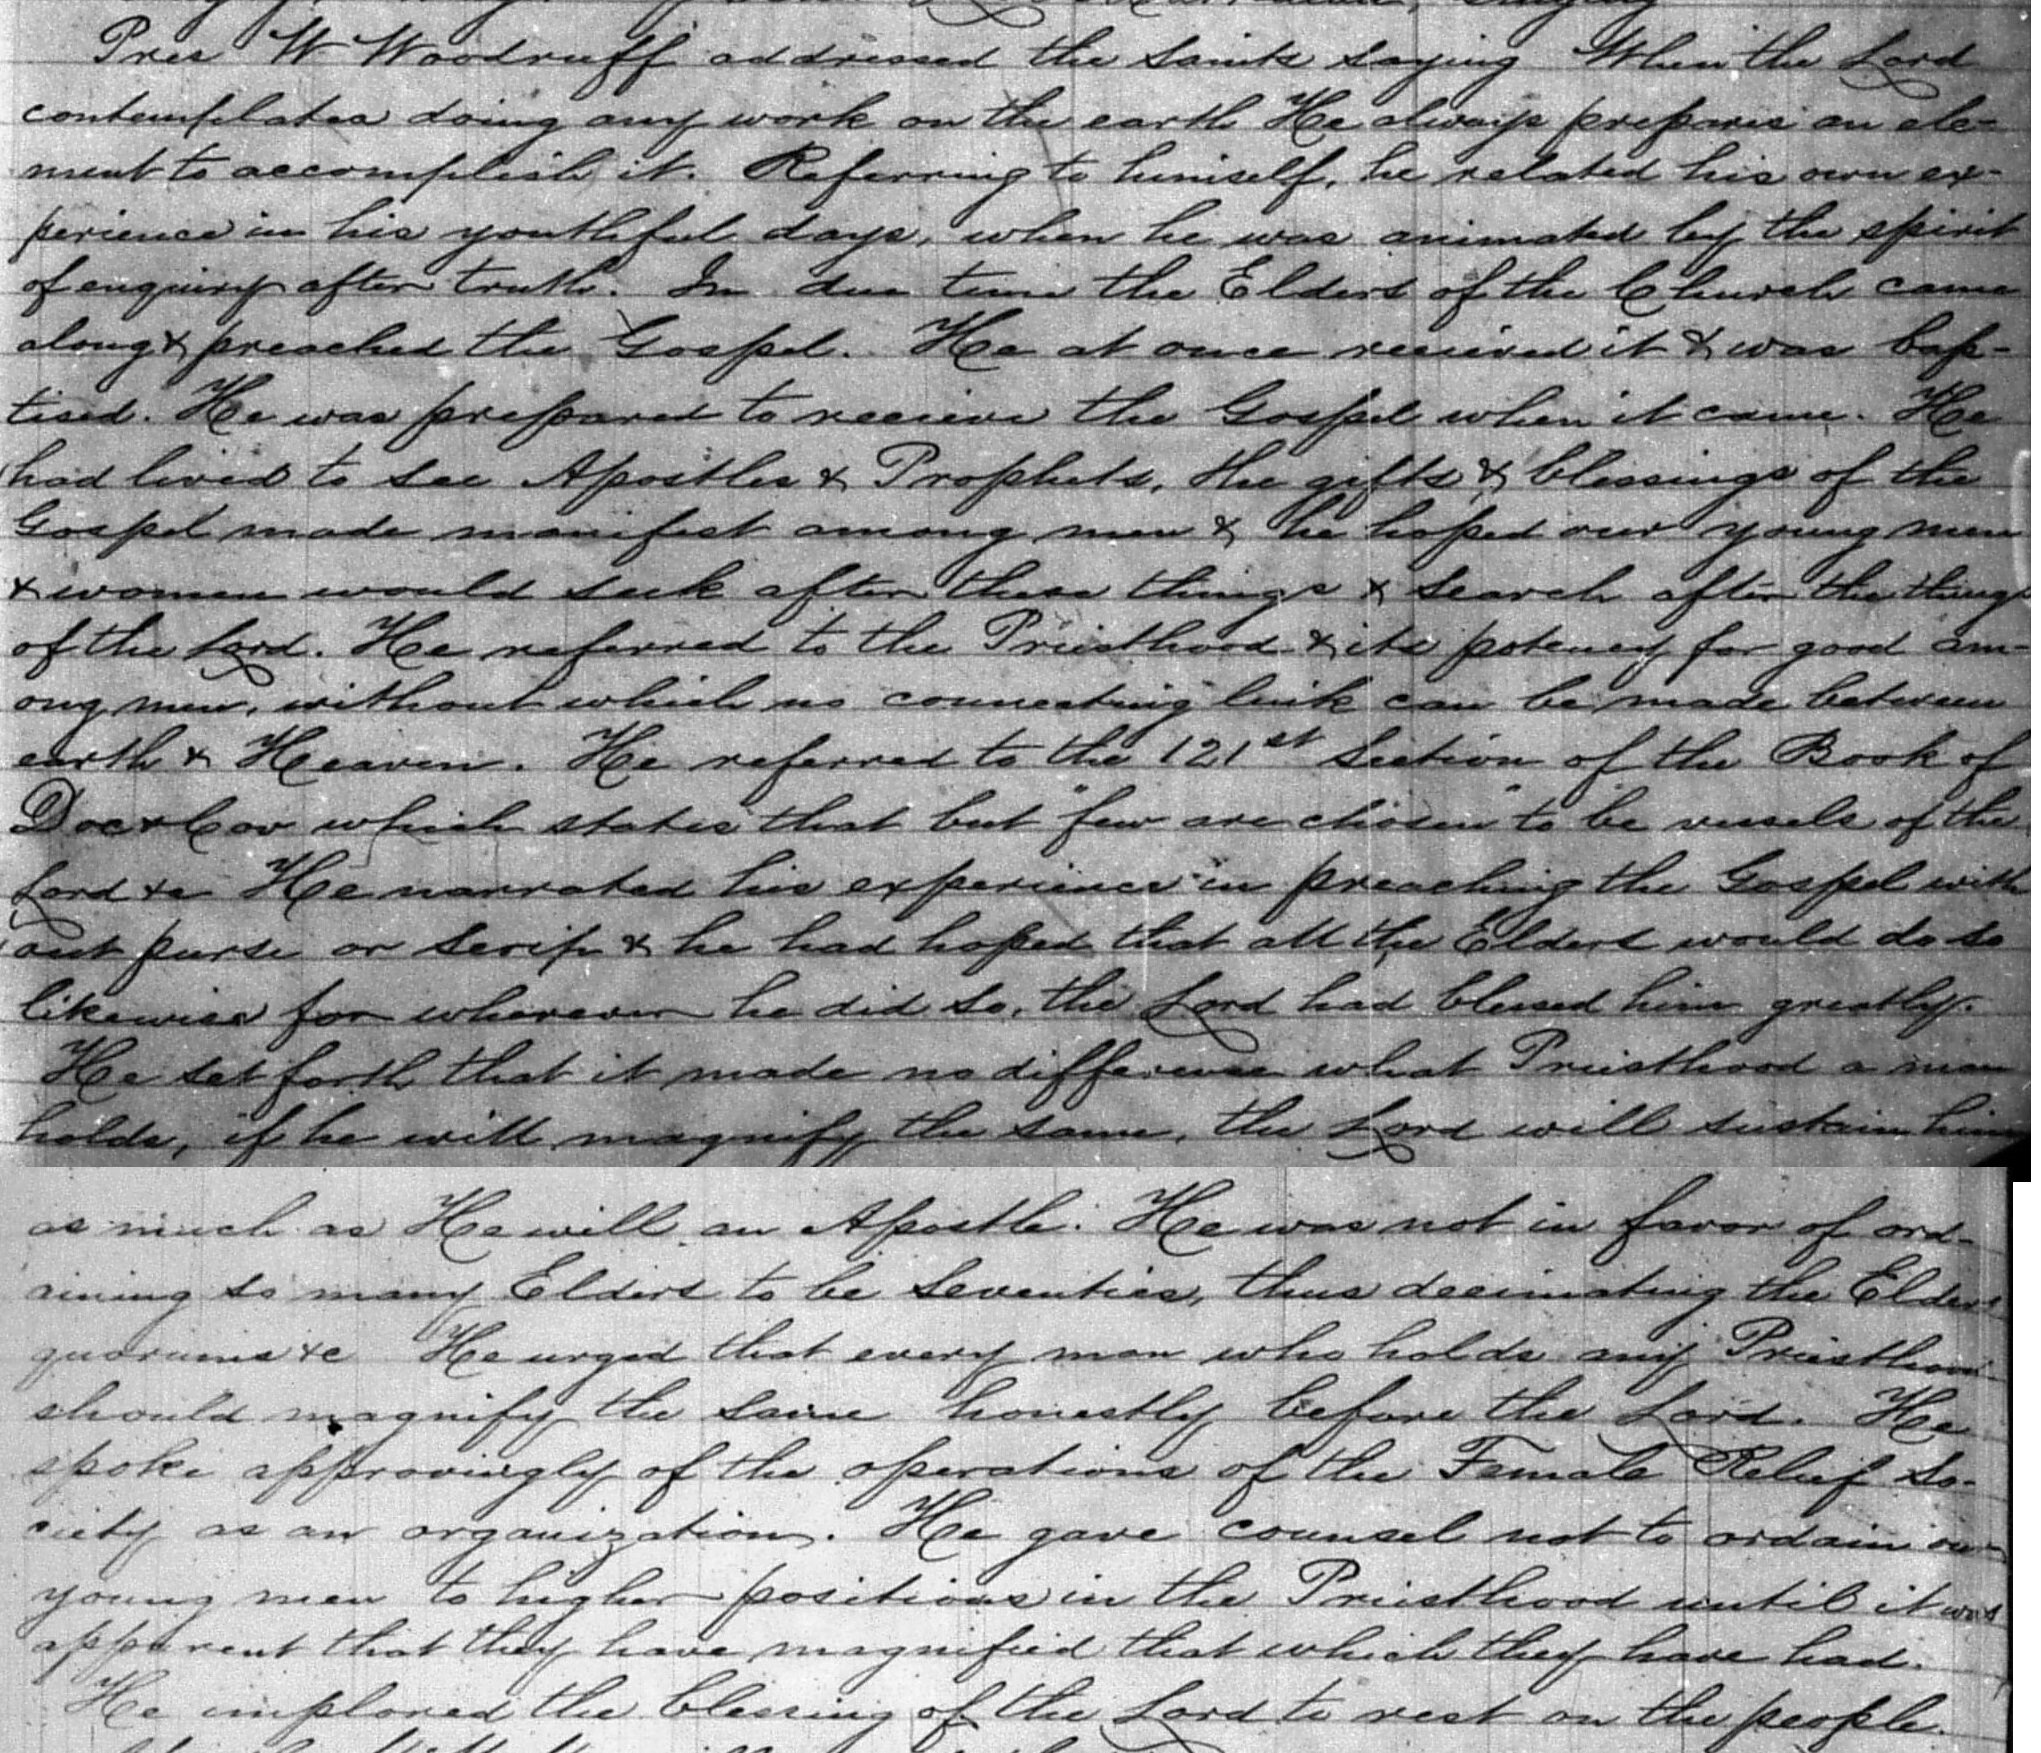 Pres W Woodruff addressed the saints saying When the Lord
contemplates doing any work on the earth He always prepares an ele-
ment to accomplish it. Referring to himself, he related his own ex-
perience in his youthful days, when he was animated by the spirit
of enquiry after truth. In due time the Elders of the Church came
along & preached the Gospel. He at once recieved it & was bap-
tised. He was prepared to recieve the Gospel when it came. He
had lived to see Apostles & Prophets, the gifts & blessings of the
Gospel made manifest among men & he hoped our young men
& women would seek after these things & search after the things
of the Lord. He referred to the Priesthood & its potency for good am-
ong men, without which no connecting link can be made between
earth & Heaven. He referred to the 121st section of the Book of
Doc & Cov which states that but "few are chosen" to be vessels of the
Lord &c He narrated his experience in preaching the Gospel with
out purse or scrip & he had hoped that all the Elders would do so
likewise for wherever he did so, the Lord had blessed him greatly.
He set forth that it made no difference what Priesthood a man
holds, if he will magnify the same, the Lord will sustain him
as much as He will an Apostle. He was not in favor of ord-
aining so many Elders to be Seventies, thus decimating the Elders
quorums &c He urged that every man who holds any Priesthood
should magnify the same honestly before the Lord. He
spoke approvingly of the operations of the Female Relief So-
ciety as an organization. He gave counsel not to ordain our
young men to higher positions in the Priesthood until it was
apparent that they have magnified that which they have had.
He implored the blessing of the Lord to rest on the people.